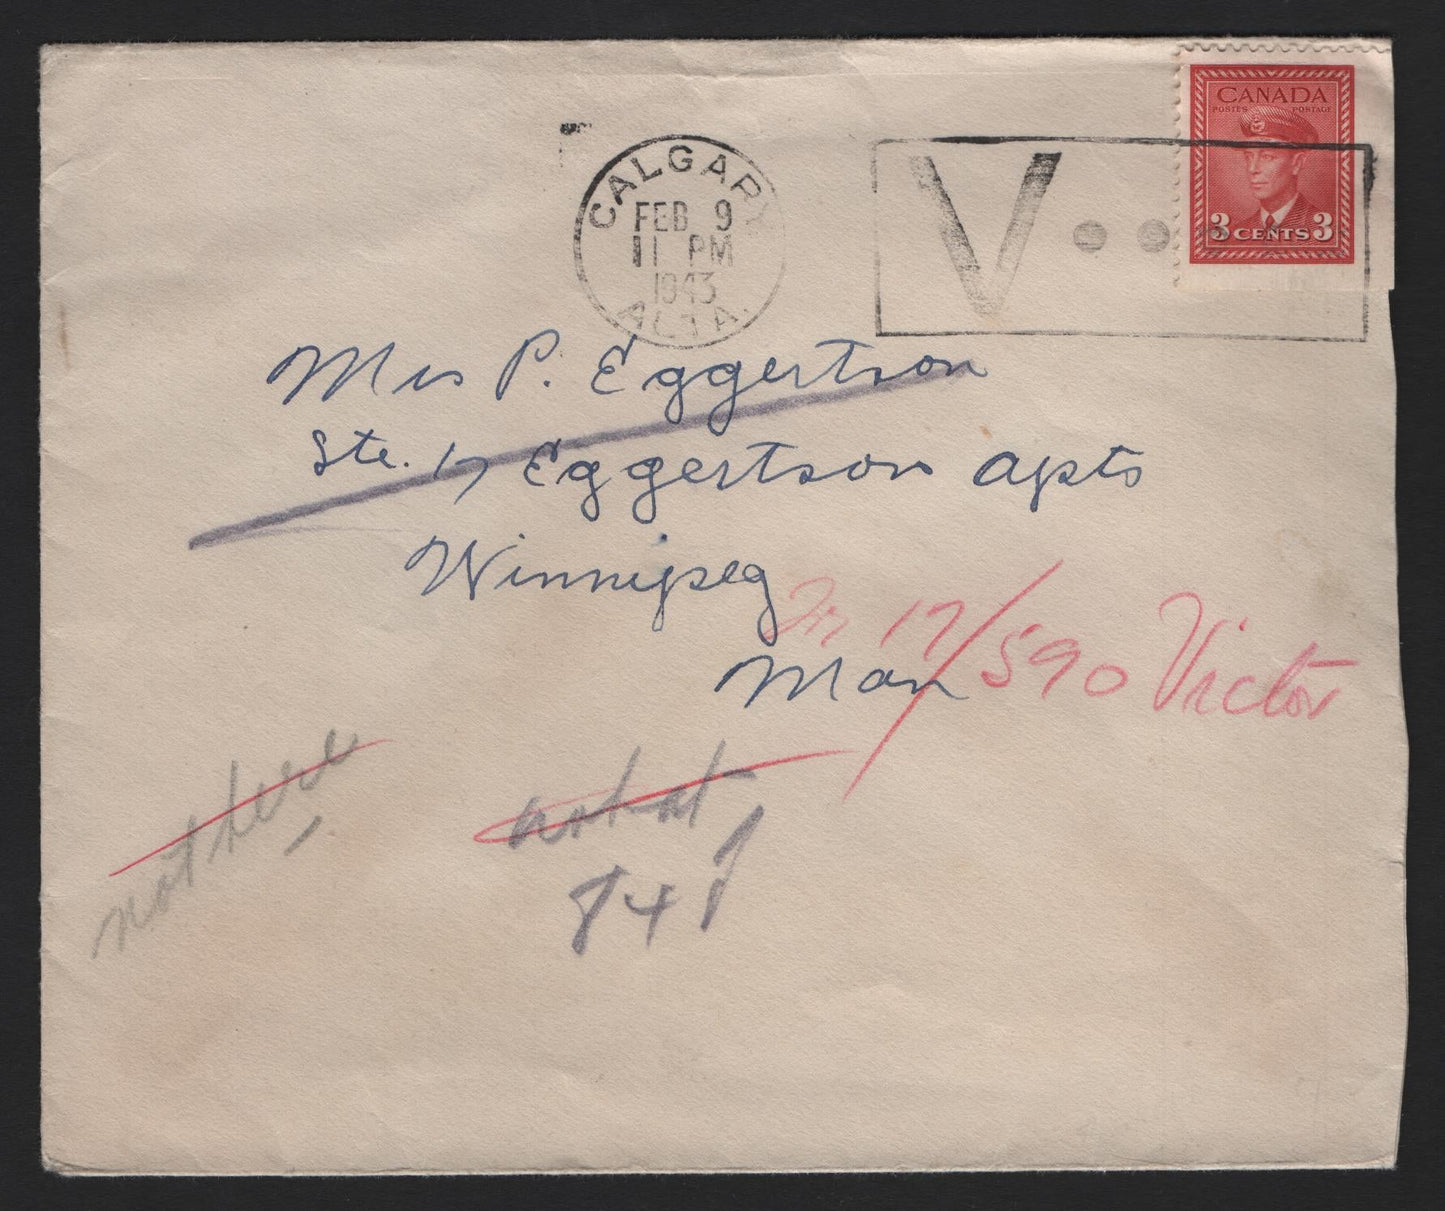 CANADA
POSTES POSTAGE
3 CENTS 3
CALGARY
FEB 9
11 PM
1943
ALTA.
V
Mrs P. Eggertson
Ste. 17 Eggertson apts
Winnipeg
Man
17/590 Victor
not here
not at
841